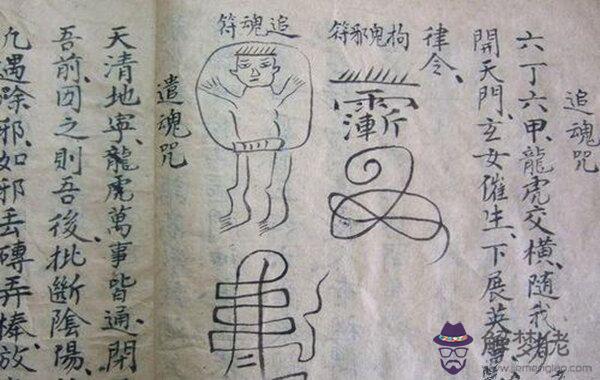 追魂咒
六丁六甲、龍虎交橫、隨我
開天門、玄女催生、下展英
律令、
拘鬼邪符
追魂符
遣魂咒
天清地寧、龍虎萬事皆通、閉
吾前、因之則吾後、批斷陰陽、
九遇除邪、如邪丟磚弄棒、放
解梦佬
www.jiemenglao.com